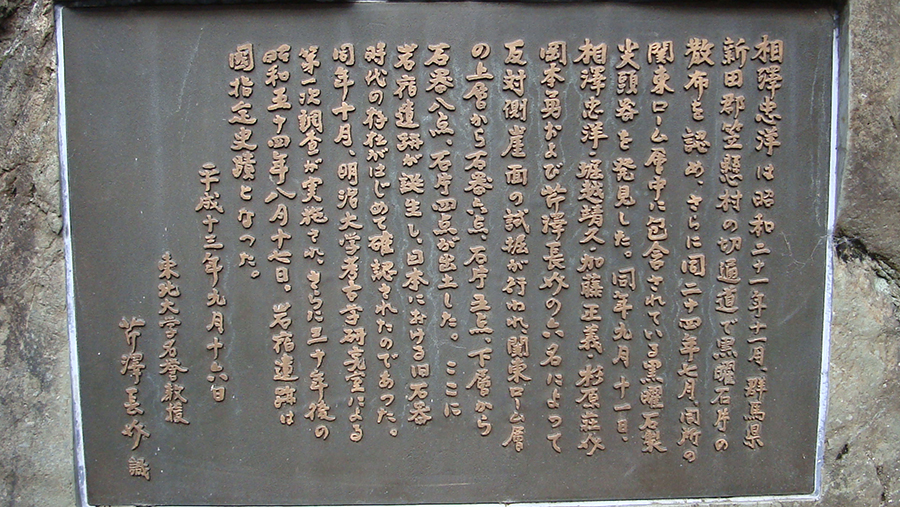 相澤忠洋は昭和二十一年十一月、群馬県
新田郡笠懸村の切通道で黒曜石片の
散布を認め、さらに同二十四年七月、同所の
関東ローム層中に包含されている黒曜石製
尖頭器を発見した。同年九月十一日、
相澤忠洋、堀越靖久、加藤正義、杉原荘介
岡本勇および芹澤長介の六名によって
反対側崖面の試掘が行われ関東ローム層
の上層から石器六点、石片五点、下層から
石器八点、石片四点が出土した。ここに
岩宿遺跡が誕生し、日本における旧石器
時代の存在がはじめて確認されたのであった。
同年十月、明治大学考古学研究室による
第二次調査が実施され、さらに三十年後の
昭和五十四年八月十七日。岩宿遺跡は
国指定史蹟となった。
平成十三年九月十六日
東北大学名誉教授
芹澤長介 識